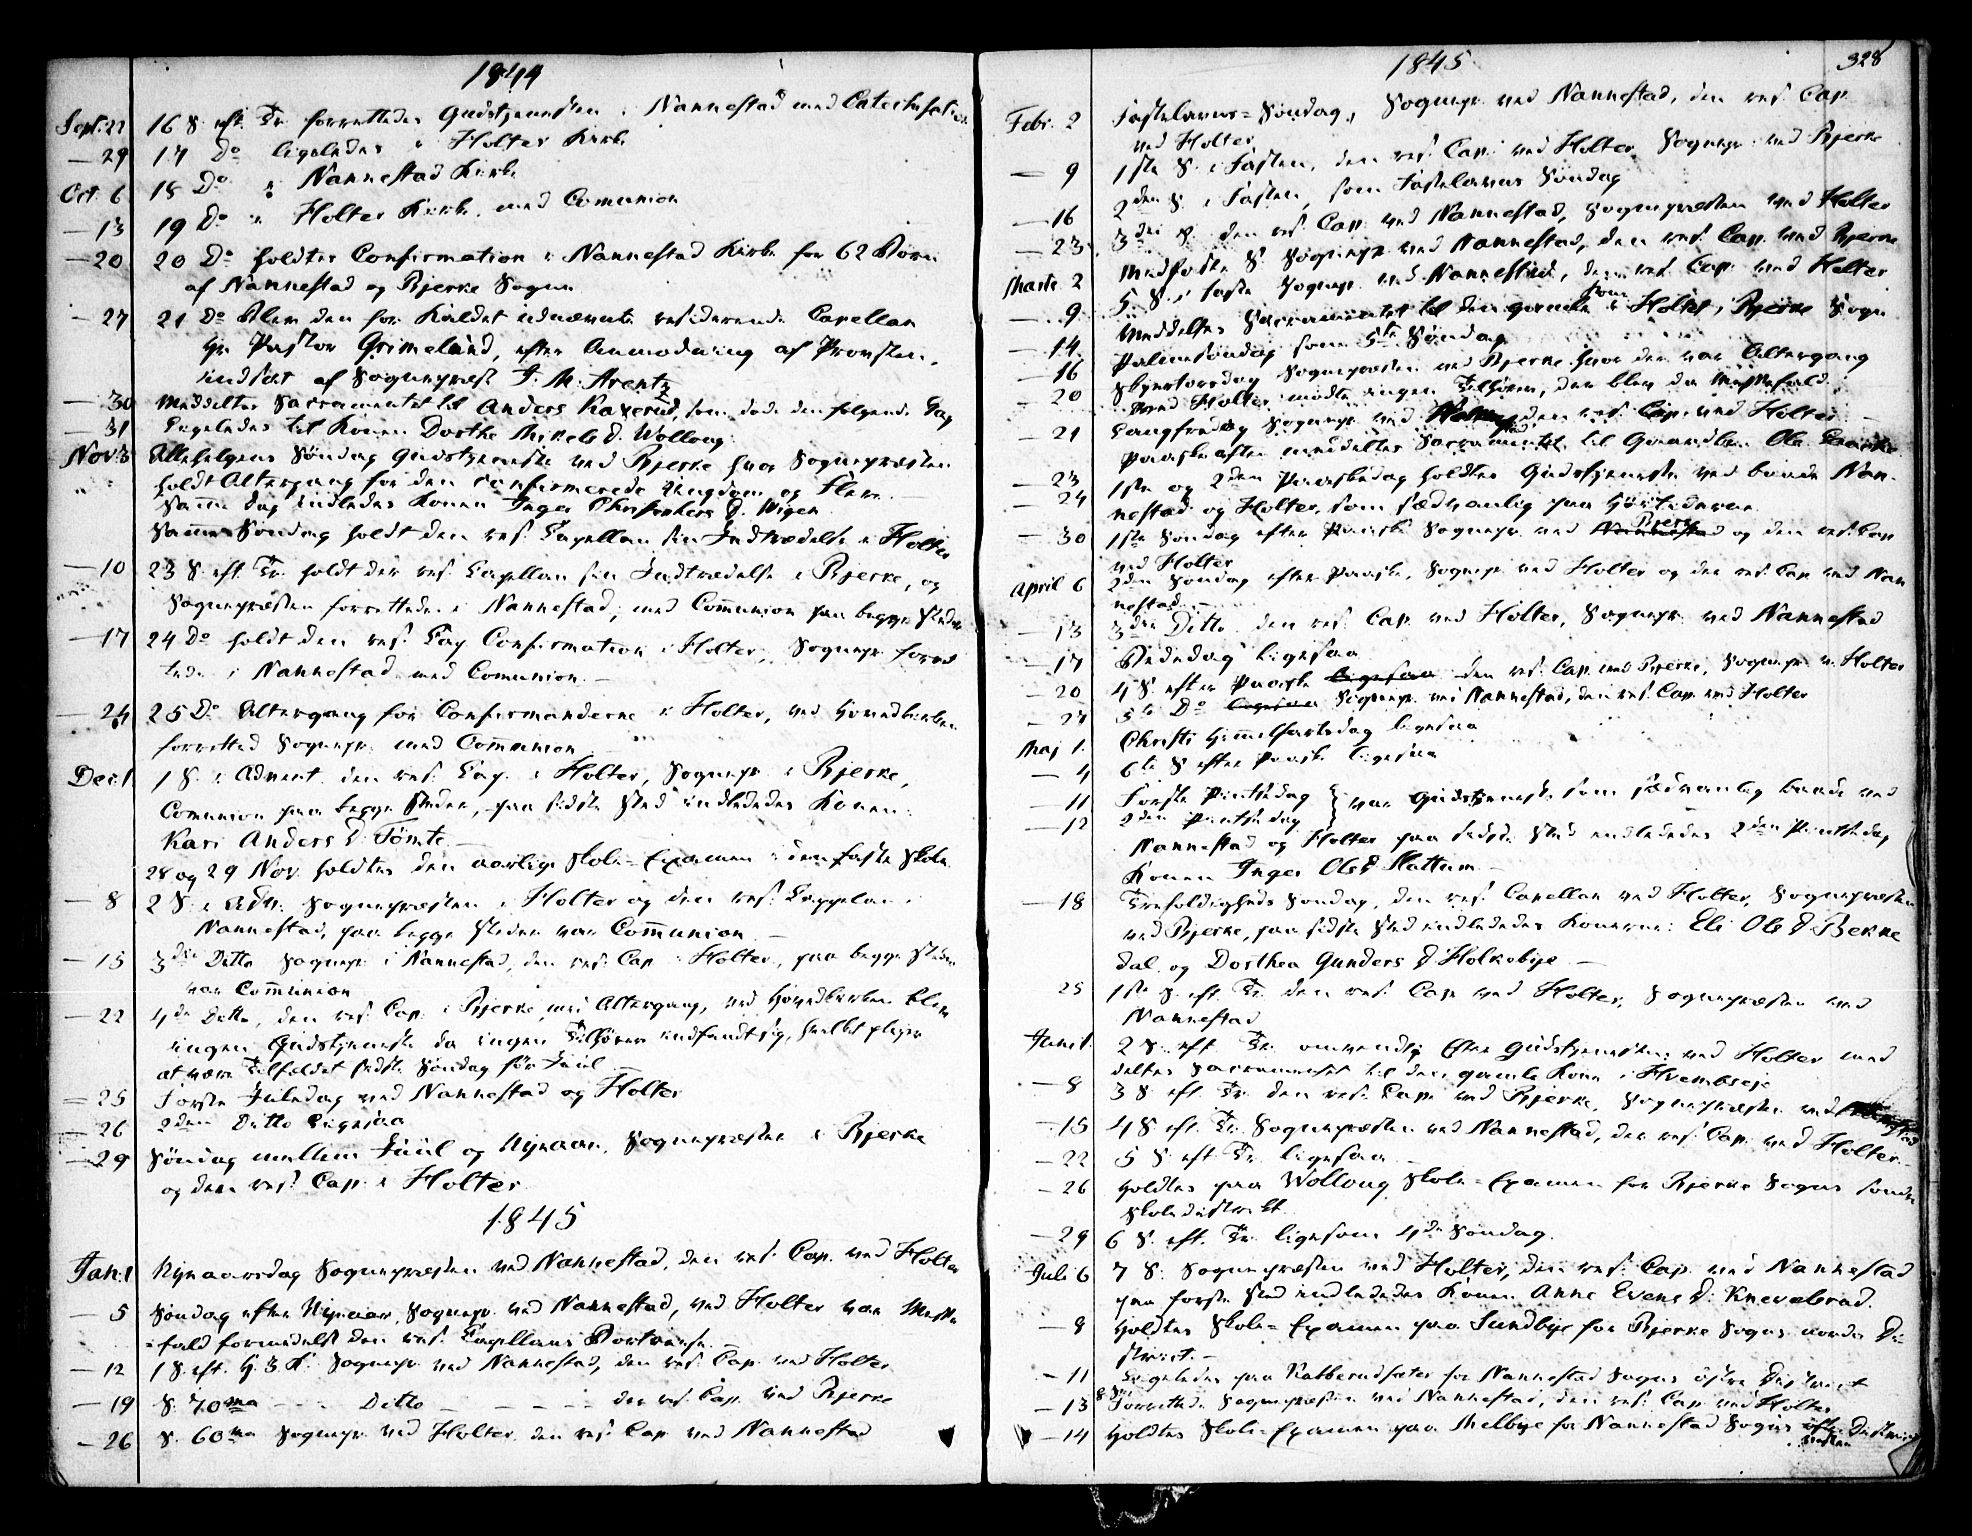 1844
Sept. 22 16 S. eft. Tr. forrettedes Gudstjenesten i Nannestad med Catechisation
— 29 17 Do ligeledes i Holter Kirke
Oct. 6 18 Do i Nannestad Kirke
— 13 19 Do i Holter Kirke med Comunion
— 20 20 Do holdtes Confirmation i Nannestad Kirke for 62 Børn
af Nannestad og Bjerke Sogne
— 27 21 Do Blev den for Kaldet udnævnte residerende Capellan
Hr Pastor Grimelund, efter Anmodning af Provsten,
indsat af Sognepræst J. M. Arentz
— 30 Meddeltes Sacramentet til Anders Kaxerud, som døde den følgende Dag
— 31 Ligeledes til Konen Dorthe Mikels D. Wolloug
Nov. 3 Allehelgens Søndag Gudstjeneste ved Bjerke hvor Sognepræsten
holdt Altergang for den confirmerede Ungdom og Flere.
Samme Dag indledes Konen Inger Christophers D. Wigen
Samme Søndag holdt den res. Capellan sin Indtrædelse i Holter
— 10 23 S. eft. Tr. holdt den res. Capellan sin Indtrædelse i Bjerke, og
Sognepræsten forrettede i Nannestad, med Communion paa begge Steder
— 17 24 Do holdt den res. Cap Confirmation i Holter, Sognepr. forret
tede i Nannestad med Comunion. —
— 24 25 Do Altergang for Confirmanderne i Holter, ved Hovedkirken
forretted Sognepr. med Communion —
Dec. 1 1 S. i Advent den res. Cap. i Holter, Sognepr. i Bjerke,
Comunion paa begge Steder, paa sidste Sted indledes Konen
Kari Anders D. Tömte —
28 og 29 Nov. holdtes den aarlige Skole-Examen i den faste Skole
— 8 2 S. i Adv. Sognepræsten i Holter og den res. Cappelan i
Nannestad, paa begge Steder var Communion —
— 15 3die Ditto Sognepr. i Nannestad, den res. Cap i Holter, paa begge Steder
var Communion
— 22 4de Ditto, den res. Cap. i Bjerke med Altergang, ved Hovedkirken blev
ingen Gudstjeneste da ingen Tilhörer indfandt sig, hvilket plejer
at være Tilfældet sidste Søndag før Juul
— 25 Første Juledag ved Nannestad og Holter
— 26 2den Ditto Ligesaa
— 29 Søndag mellem Juul og Nyaar, Sognepræsten i Bjerke
og den res. Cap. i Holter
1845
Jan. 1 Nyaarsdag Sognepræsten ved Nannestad, den res. Cap. ved Holter
— 5 Søndag efter Nyaar, Sognepr. ved Nannestad, ved Holter var Messe-
fald formedelst den res. Capellans Bortreise. —
— 12 1 S. eft. H. 3 K. Sognepr. ved Nannestad, den res. Cap. ved Holter
— 19 S. 70ma - - - Ditto - - - - den res. Cap. ved Bjerke
— 26 S. 60ma Sognepr. ved Holter den res. Cap. ved Nannestad
1845
328
Febr. 2 Fastelavns-Søndag, Sognepr. ved Nannestad, den res. Cap.
ved Holter
— 9 1ste S. i Fasten, den res. Cap. ved Holter Sognepr. ved Bjerke
— 16 2den S. i Fasten, som Fastelavns Søndag
— 23 3die S. den res. Cap. ved Nannestad, Sognepræsten ved Holter
Marts 2 Midfaste S. Sognepr. ved Nannestad, den res. Cap. ved Bjerke
— 9 5 S. i Faste Sognepr. ved Nannestad, den res. Cap. ved Holter
— 14 Meddeltes Sacramentet til den gamle Kone i Holter, Bjerke Sogn
— 16 Palmesøndag som 5te Søndag
— 20 Skjertorsdag Sognepræsten ved Bjerke hvor der var Altergang
ved Holter mødte ingen Tilhører, der blev da Messefald.
— 21 Langfredag Sognepr. ved den res. Cap. ved Holter —
Paaskeaften meddeltes Sacramentet til Ole
— 23 1ste og 2den Paaskedag holdtes Gudstjeneste ved baade Nan-
— 24 nestad og Holter, som sædvanlig paa Høitiderne
— 30 1ste Søndag efter Paaske Sognepr. ved Nannestad Bjerke og den res. Cap
ved Holter
April 6 2den Søndag efter Paaske, Sognepr. ved Holter og den res. Cap ved Nan
nestad. —
— 13 3die Ditto den res. Cap. ved Holter, Sognepr. ved Nannestad
— 17 Bededag ligesaa
— 20 4 S. efter Paaske ligesaa den res. Cap. ved Bjerke, Sognepr. v. Holter
— 27 5te Do ligesaa Sognepr. ved Nannestad, den res. Cap. ved Holter
Maj 1. Christi Himmelfartsdag ligesaa
— 4 6te S. efter Paaske ligesaa
— 11 Første Pintsedag } var Gudstjeneste som sædvanlig baade ved
— 12 2den Pintsedag }
Nannestad og Holter paa sidste Sted indledes 2den Pintsedag
Konen Inger Ols D. Slattum —
— 18 Trefoldigheds Søndag, den res. Capellan ved Holter, Sognepræsten
ved Bjerke, paa sidste Sted indledes Konerne: Eli Ols D. Bekke
dal og Dorthea Gunders D. Holkobye —
25 1ste S. eft. Tr. den res. Cap. ved Holter, Sognepræsten ved
Nannestad
Juni 1. 2 S. eft. Tr. omvendt, Efter Gudstjenesten ved Holter med
deeltes Sacramentet til den gamle Kone i Hvembseje
— 8 3 S. eft. Tr. den res. Cap. ved Bjerke, Sognepræsten ved
— 15 4 S. eft. Tr. Sognepræsten ved Nannestad, den res. Cap. ved Holter.
— 22 5 S. eft. Tr. ligesaa —
— 26 Holdtes paa Wolloug Skole-Examen for Bjerke Sogns søndre
Skoledistrict.
— 29 6 S. eft. Tr. ligesom 4de Søndag.
Juli 6 7 S. Sognepræsten ved Holter, den res. Cap. ved Nannestad
paa første Sted indledes Konen Anne Evens D. Knevelsrud.
— 8 Holdtes Skole-Examen paa Sundbye for Bjerke Sogns nordre Di-
strict. —
— 11 Ligeledes paa for Nannestad Sogns østre District
— 13 8 S. Forrettede Sognepræsten ved Nannestad, den res. Cap. ved Holter
— 14 Holdtes Skole-Examen paa Melbye for Nannestad Sogns østre District
vestre